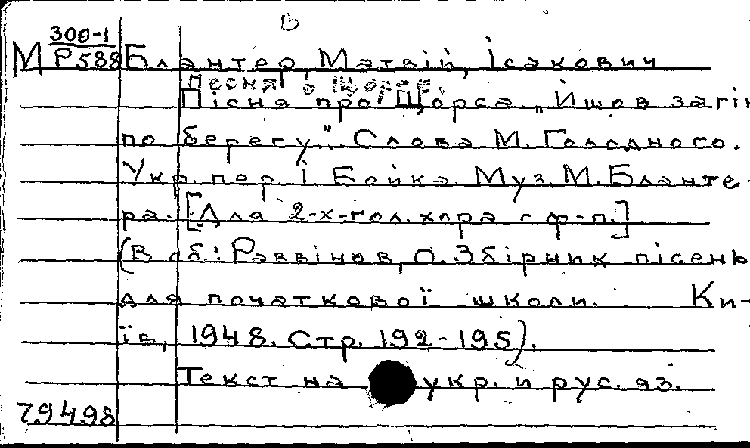 В
300-1
М Р588 Блантер, Матвій, Ісакович
Песня о Щорсе.
Пісня про Щорса „Йшов загін
по берегу". Слова М. Голодного.
Укр. пер. І Бойка. Муз. М. Бланте-
ра. [Для 2-х-гол. хора с ф-п.]
(В сб: Раввінов, О. Збірник пісень
для початкової школи. Ки-
їв, 1948. Стр. 192-195).
Текст на укр. и рус. яз.
79498